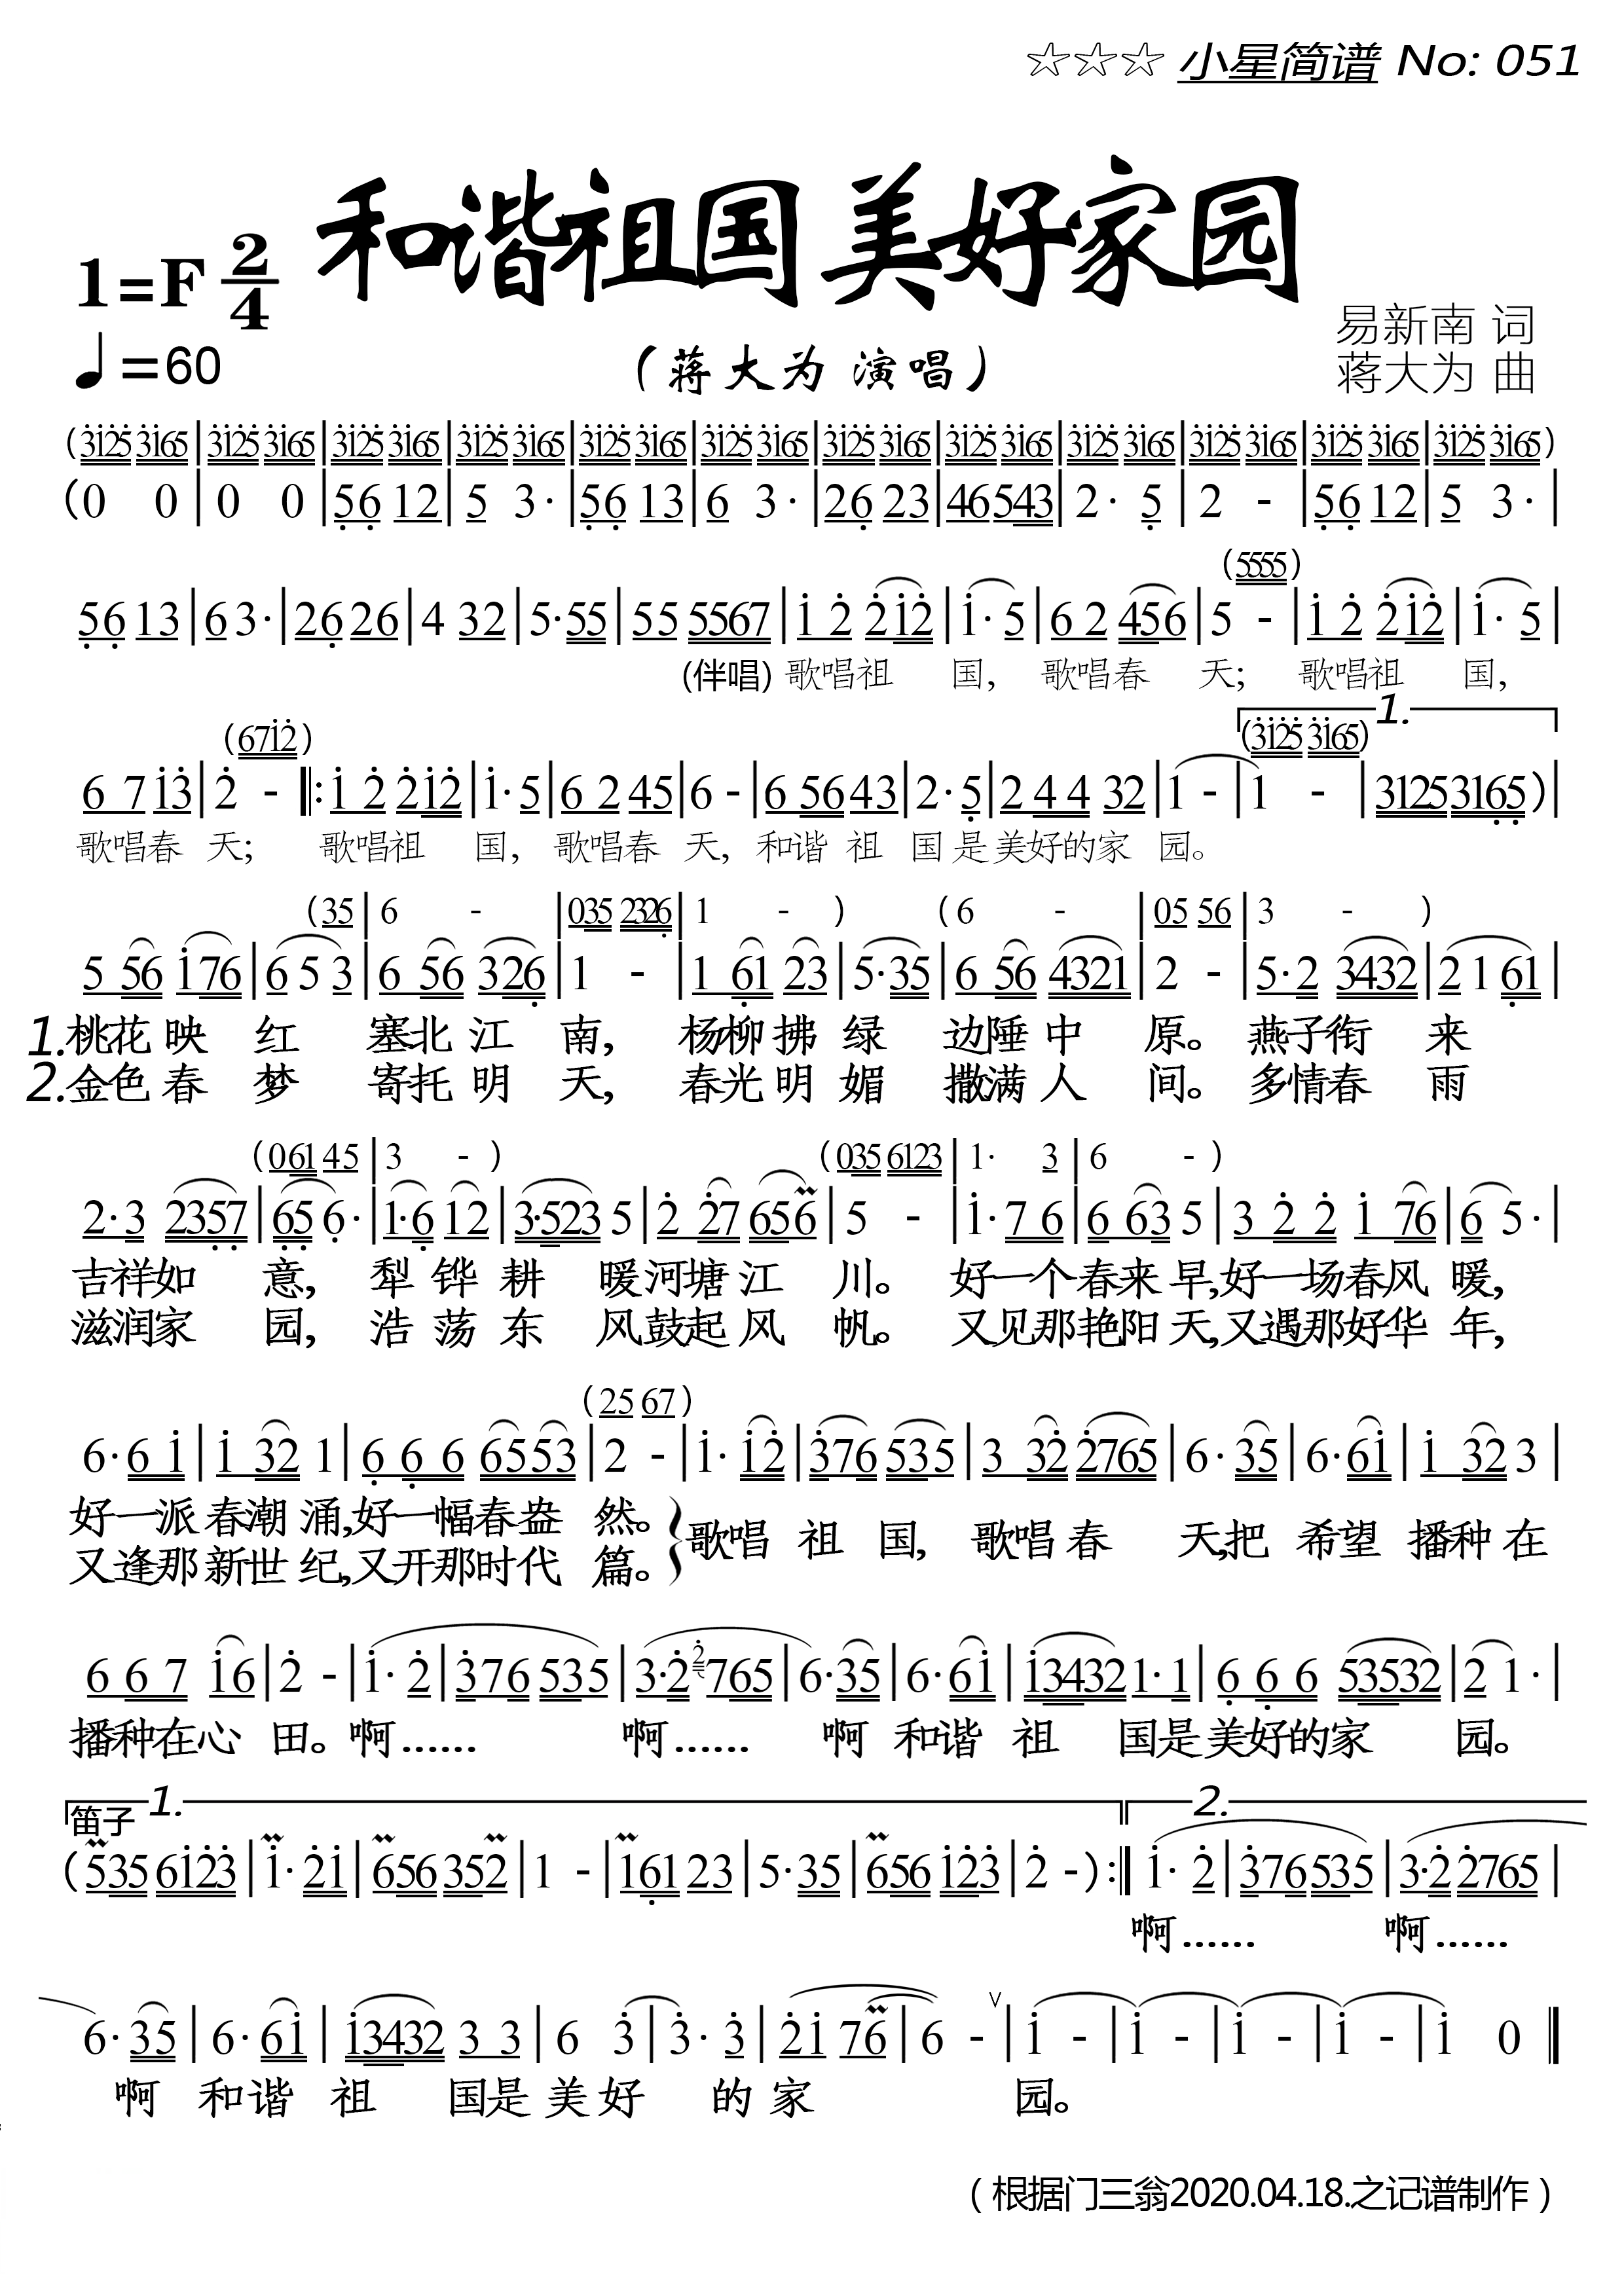 ☆☆☆ 小星简谱 No: 051
和谐祖国 美好家园
1=F 2/4
♩=60
(蒋大为 演唱)
易新南 词
蒋大为 曲
(3125 3165|3125 3165|3125 3165|3125 3165|3125 3165|3125 3165|3125 3165|3125 3165|3125 3165|3125 3165|3125 3165|3125 3165)
(0 0|0 0|56 12|5 3·|56 13|6 3·|26 23|46543|2· 5|2 -|56 12|5 3·|
(5555)
56 13|6 3·|26 26|4 32|5·55|55 5567|1 2 212|1· 5|6 2 456|5 -|1 2 212|1· 5|
(伴唱) 歌唱祖 国, 歌唱春 天; 歌唱祖 国,
1.
(6712) (3125 3165)
6 7 13|2 -‖:1 2 212|1·5|6 2 45|6 -|6 56 43|2·5|2 4 4 32|1 -|1 -|31253165)|
歌唱春 天; 歌唱祖 国, 歌唱春 天, 和谐 祖 国 是美好的家 园。
(35|6 -|035 2326|1 -) (6 -|05 56|3 -)
5 56 176|6 5 3|6 56 326|1 -|1 61 23|5·35|6 56 4321|2 -|5·2 3432|2 1 61|
1.桃花 映 红 塞北 江 南, 杨柳 拂 绿 边陲 中 原。 燕子衔 来
2.金色 春 梦 寄托 明 天, 春光 明 媚 撒满 人 间。 多情春 雨
(061 45|3 -) (035 6123|1· 3|6 -)
2·3 2357|65 6·|1·6 12|3·523 5|2 27 656|5 -|1·7 6|6 63 5|3 2 2 1 76|6 5·|
吉祥如 意, 犁 铧 耕 暖河塘 江 川。 好一个春来 早,好一场春风 暖,
滋润家 园, 浩 荡 东 风鼓起 风 帆。 又见那艳阳 天,又遇那好华 年,
(25 67)
6·6 1|1 32 1|6 6 6 6553|2 -|1·12|376 535|3 32 2765|6·35|6·61|1 32 3|
好一派 春潮 涌,好一幅春盎 然。 歌唱 祖 国, 歌唱 春 天,把 希望 播种 在
又逢那 新世 纪,又开那时代 篇。
6 6 7 16|2 -|1· 2|376 535|3·2 2 765|6·35|6·61|134321·1|6 6 6 53532|2 1·|
播种在心 田。啊…… 啊…… 啊 和谐 祖 国是美好的家 园。
1. 2.
笛子
(535 6123|1·21|656 352|1 -|161 23|5·35|656 123|2 -):‖1· 2|376535|3·2 2765|
啊…… 啊……
6·35|6·61|13432 3 3|6 3|3· 3|21 76|6 -|1 -|1 -|1 -|1 -|1 0‖
啊 和谐 祖 国是 美好 的家 园。
(根据门三翁2020.04.18.之记谱制作)